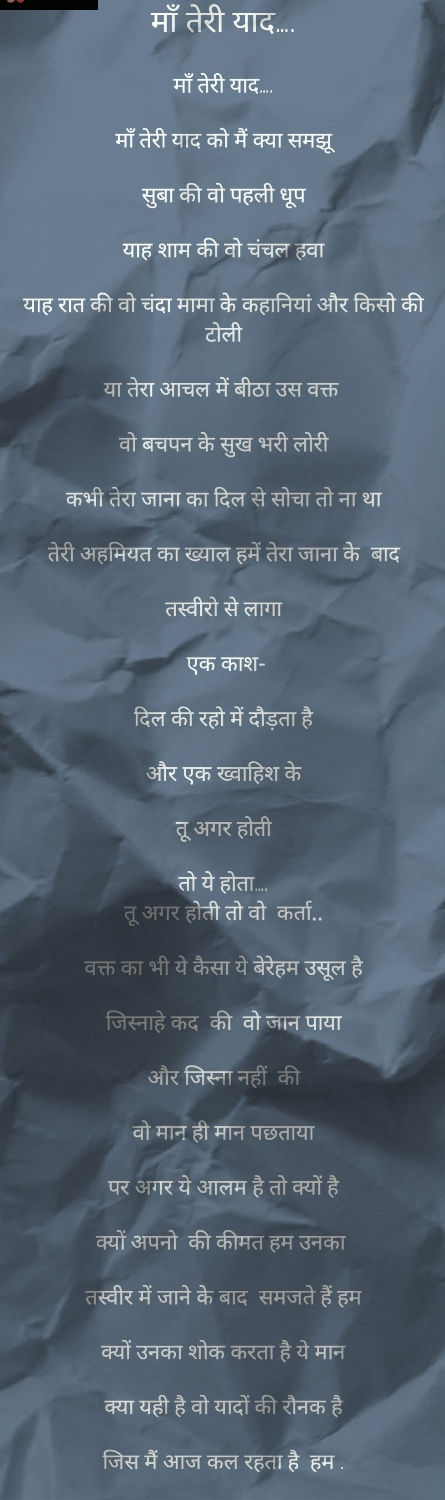 माँ तेरी याद....
माँ तेरी याद....
माँ तेरी याद को मैं क्या समझू
सुबा की वो पहली धूप
याह शाम की वो चंचल हवा
याह रात की वो चंदा मामा के कहानियां और किसो की
टोली
या तेरा आचल में बीठा उस वक्त
वो बचपन के सुख भरी लोरी
कभी तेरा जाना का दिल से सोचा तो ना था
तेरी अहमियत का ख्याल हमें तेरा जाना के बाद
तस्वीरो से लागा
एक काश-
दिल की रहो में दौड़ता है
और एक ख्वाहिश के
तू अगर होती
तो ये होता....
तू अगर होती तो वो कर्ता..
वक्त का भी ये कैसा ये बेरेहम उसूल है
जिस्नाहे कद की वो जान पाया
और जिस्ना नहीं की
वो मान ही मान पछताया
पर अगर ये आलम है तो क्यों है
क्यों अपनो की कीमत हम उनका
तस्वीर में जाने के बाद समजते हैं हम
क्यों उनका शोक करता है ये मान
क्या यही है वो यादों की रौनक है
जिस मैं आज कल रहता है हम .